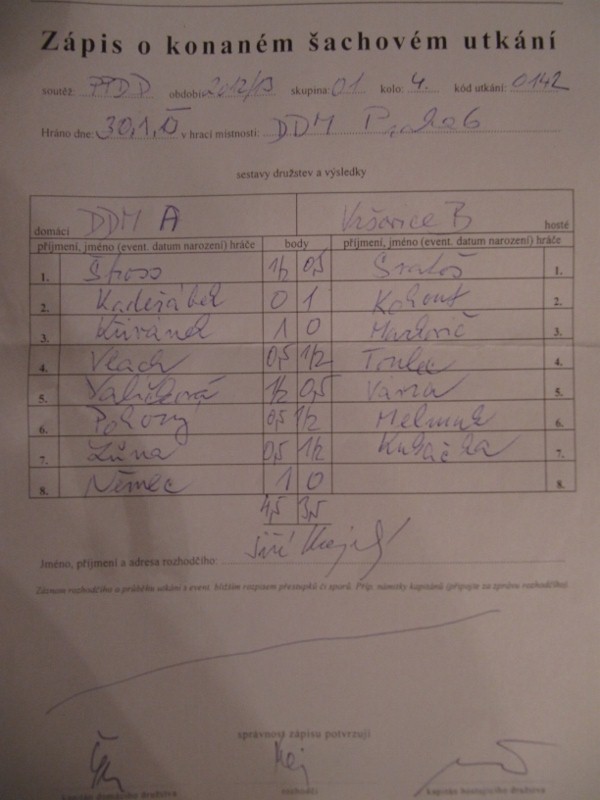 Zápis o konaném šachovém utkání
soutěž: PPDD období 2012/13 skupina: 01 kolo: 4. kód utkání: 0142
Hráno dne: 30.1. v hrací místnosti: DDM Praha 6
sestavy družstev a výsledky
domácí DDM A Vršovice B hosté
příjmení, jméno (event. datum narození) hráče body příjmení, jméno (event. datum narození) hráče
1. Štross 1/2 0,5 1.
2. Kadeřábek 0 1 Kohout 2.
3. Křivánek 1 0 Markovič 3.
4. Vlach 0,5 1/2 4.
5. 1/2 0,5 Vávra 5.
6. Pokorný 0,5 1/2 6.
7. Lůna 0,5 1/2 7.
8. Němec 1 0 8.
4,5 3,5
Jméno, příjmení a adresa rozhodčího: Jiří
Záznam rozhodčího o průběhu utkání s event. bližším rozpisem přestupků či sporů. Příp. námitky kapitánů (připojte za zprávu rozhodčího).
správnost zápisu potvrzují
Kej
kapitán domácího družstva rozhodčí kapitán hostujícího družstva